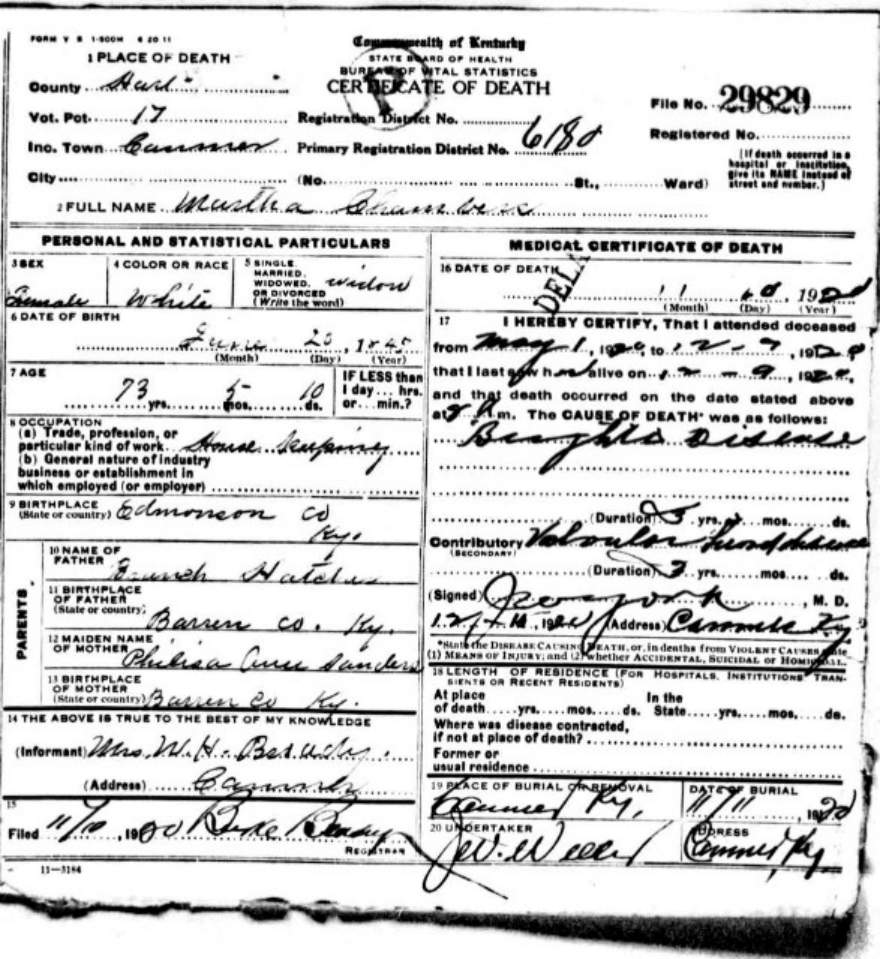 FORM V S 1-500M 6 20 11
Commonwealth of Kentucky
STATE BOARD OF HEALTH
BUREAU OF VITAL STATISTICS
CERTIFICATE OF DEATH
1 PLACE OF DEATH
County Hart
Vot. Pct. 17
Registration District No.
File No. 29829
Inc. Town Canmer
Primary Registration District No. 6180
Registered No.
City
(No. St., Ward)
(If death occurred in a hospital or institution, give its NAME instead of street and number.)
2 FULL NAME Martha Chambers
PERSONAL AND STATISTICAL PARTICULARS
3 SEX
Female
4 COLOR OR RACE
White
5 SINGLE, MARRIED, WIDOWED, OR DIVORCED (Write the word) widow
6 DATE OF BIRTH
20, 1845
(Month) (Day) (Year)
7 AGE
73 yrs. 5 mos. 10 ds.
IF LESS than 1 day... hrs. or... min.?
8 OCCUPATION
(a) Trade, profession, or particular kind of work House Keeping
(b) General nature of industry business or establishment in which employed (or employer)
9 BIRTHPLACE
(State or country) Edmonson Co
Ky.
PARENTS
10 NAME OF FATHER
11 BIRTHPLACE OF FATHER (State or country)
Barren Co. Ky.
12 MAIDEN NAME OF MOTHER
Ann Sanders
13 BIRTHPLACE OF MOTHER
(State or country) Barren Co Ky.
14 THE ABOVE IS TRUE TO THE BEST OF MY KNOWLEDGE
(Informant) Mrs. W. H.
(Address) Canmer
15
Filed 11/10, 1920
REGISTRAR
11—3184
MEDICAL CERTIFICATE OF DEATH
DELA
16 DATE OF DEATH
11 10, 1920
(Month) (Day) (Year)
17 I HEREBY CERTIFY, That I attended deceased
from May 1, 1920, to 12 - 9, 1920
that I last saw h alive on 12 - 9, 1920,
and that death occurred on the date stated above
at 8 m. The CAUSE OF DEATH* was as follows:
Brights Disease
(Duration) 3 yrs. mos. ds.
Contributory Valvular heart disease
(SECONDARY)
(Duration) 3 yrs. mos. ds.
(Signed) , M. D.
(Address) Ky
*State the DISEASE CAUSING DEATH, or, in deaths from VIOLENT CAUSES, state
(1) MEANS OF INJURY; and (2) whether ACCIDENTAL, SUICIDAL or HOMICIDAL.
18 LENGTH OF RESIDENCE (FOR HOSPITALS, INSTITUTIONS, TRANSIENTS OR RECENT RESIDENTS)
At place of death yrs. mos. ds. In the State yrs. mos. ds.
Where was disease contracted,
if not at place of death?
Former or
usual residence
19 PLACE OF BURIAL OR REMOVAL
Canmer Ky.
DATE OF BURIAL
11/11, 1920
20 UNDERTAKER
ADDRESS
Canmer, Ky